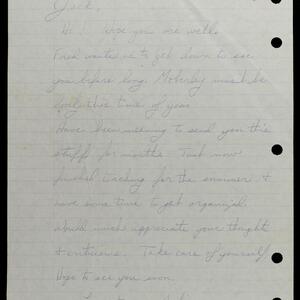 Jack,
Hi! Hope you are well.
Fred wants us to get down to see
you before long. Moberly must be
lovely this time of year.
Have been meaning to send you this
stuff for months. Just now
finished teaching for the summer &
have some time to get organized.
Would much appreciate your thought
& criticisms. Take care of yourself
Hope to see you soon.